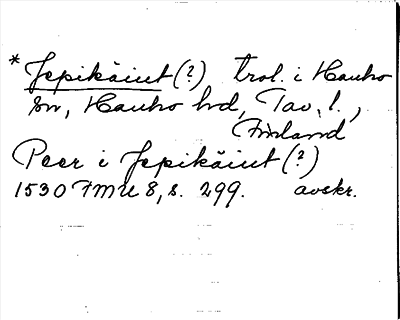 * Jepikäiut (?) trol. i Hauho
sn, Hauho hd, Tav. l.,
Finland
Peer i Jepikäiut (?)
1530 FMU 8, s. 299. avskr.